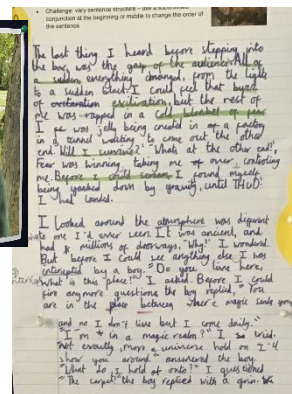 Challenge: vary sentence structure – use a subordinating
conjunction at the beginning or middle to change the order of
the sentence
The last thing I heard before stepping into
the box, was the gasp of the audience. All of
a sudden everything changed, from the lights
to a sudden black. I could feel that burst
of exiliration, but the rest of
me was wrapped in a cold blanket of fear
I was jelly being created in a factory
in a tunnel waiting to come out the other
end. Will I survive? Whats at the other end?
Fear was winning, taking me over, controling
me. Before I could scream, I found myself
being yanked down by gravity, until THUD!
I had landed.
I looked around the atmosphere was different
to one I'd ever seen. It was ancient, and
had millions of doorways, "Why?" I wondered.
But before I could see anything else I was
intercepted by a boy. "Do you live here,
what is this place?" I asked. Before I could
fire anymore questions the boy replied, "You
are in the place between where magic
and no I don't live but I come daily."
"I'm in a magic realm?" I cried.
"Not exactly, more a universe hold on I'll
show you around" answered the boy.
"What do I hold of onto?" I questioned
"The carpet!" the boy replied with a grin.